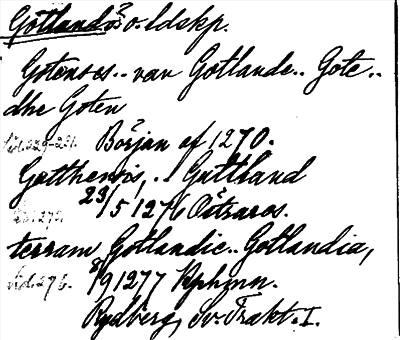 Gotlands ö o. ldskp.
Gotenses.. van Gotlande.. Gote..
dhe Goten
sid. 229-231. Början af 1270.
Gotthensis.. Guttland
23/5 1276 Östraros.
terram Gotlandie.. Gotlandia,
sid. 276. 8/9 1277 Kphmn.
Rydberg, Sv. Trakt. I.